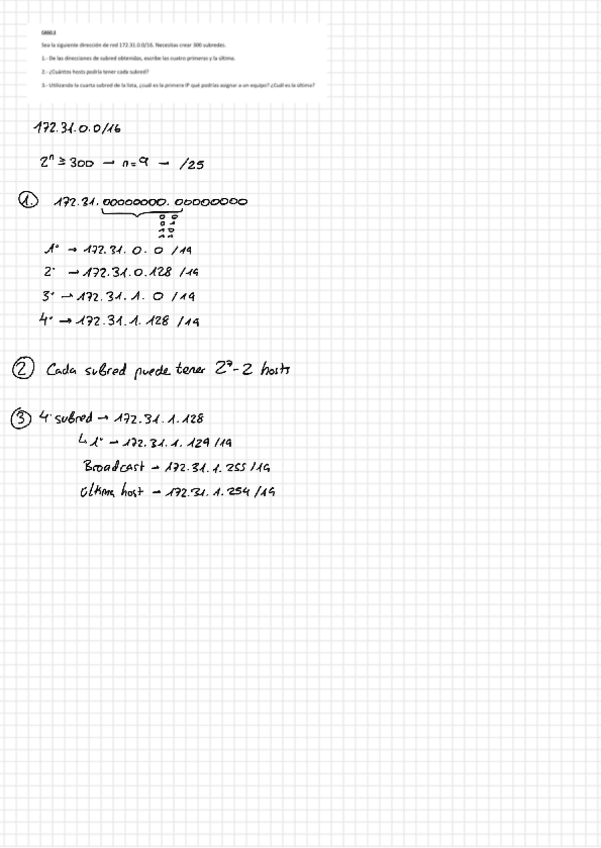 CASO 3
Sea la siguiente dirección de red 172.31.0.0/16. Necesitas crear 300 subredes.
1.- De las direcciones de subred obtenidas, escribe las cuatro primeras y la última.
2.- ¿Cuántos hosts podría tener cada subred?
3.- Utilizando la cuarta subred de la lista, ¿cuál es la primera IP qué podrías asignar a un equipo? ¿Cuál es la última?
172.31.0.0/16
2ⁿ ≥ 300 → n=9 → /25
1. 172.31.00000000.00000000
0 0
0 1
1 0
1 1
1° → 172.31.0.0 /19
2° → 172.31.0.128 /19
3° → 172.31.1.0 /19
4° → 172.31.1.128 /19
2 Cada subred puede tener 2⁷-2 hosts
3 4° subred → 172.31.1.128
↳ 1° → 172.31.1.129 /19
Broadcast → 172.31.1.255 /19
Última host → 172.31.1.254 /19